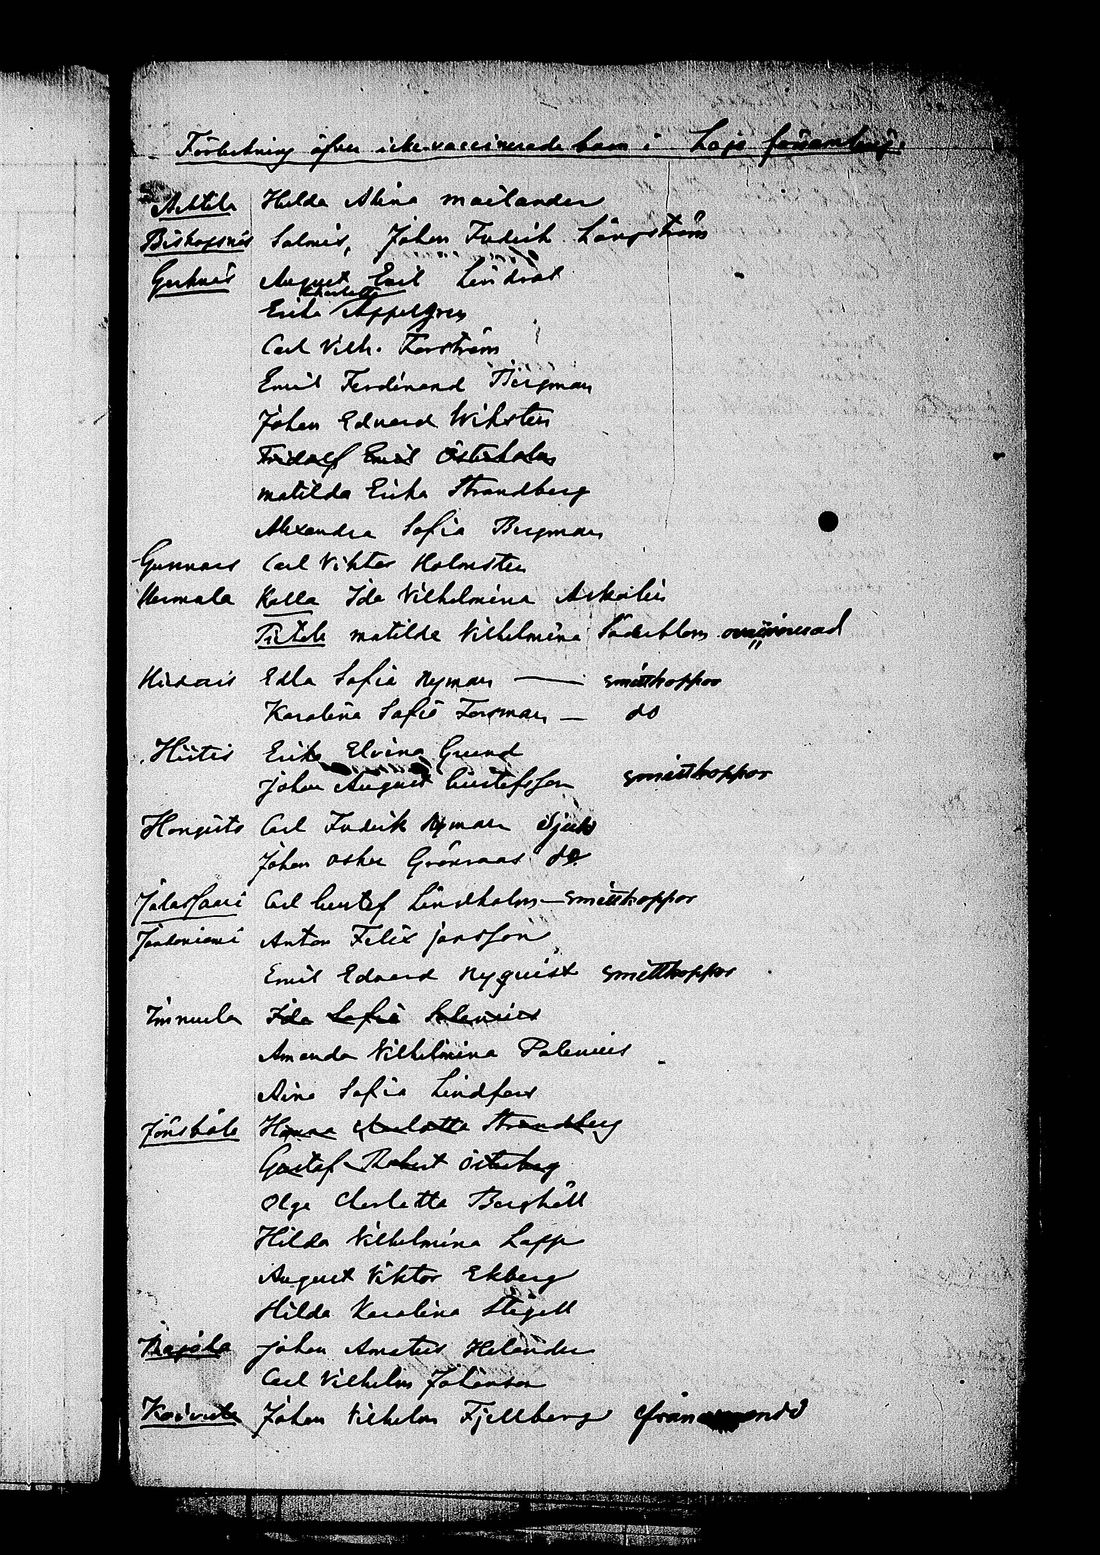 Förteckning öfver icke vaccinerade barn i Lojo församling.
Hilda Alina Mailander
Bishopsnäs Salmis, Johan Fredrik Långström
Gerknäs August Emil Lindrot
Charlotta
Erika Appelgren
Carl Vilh. Forström
Emil Ferdinand Bergman
Johan Edvard Wiksten
Fridolf Emil Österholm
Matilda Erika Strandberg
Alexandra Sofia Bergman
Gunnars Carl Viktor Holmsten
Hermala Kalla Ida Vilhelmina Askolin
Matilda Vilhelmina Söderblom
Edla Sofia Nyman — smittkoppor
Karolina Sofia Forsman — do
Hiitis Erika Elvina Grund
Johan August Gustafsson smittkoppor
Hongisto Carl Fredrik Nyman sjuk
Johan Oskar Grönroos do
Jalassaari Carl Gustaf Lindholm — smittkoppor
Jantoniemi Anton Felix Jansson
Emil Edvard Nyqvist smittkoppor
Immula Ida Sofia Salenius
Amanda Vilhelmina Palenius
Aina Sofia Lindfors
Jönsböle Hanna Charlotta Strandberg
Gustaf Robert Österberg
Olga Charlotta Berghäll
Hilda Vilhelmina Lapp
August Viktor Ekberg
Hilda Karolina Stigell
Johan Amatus Helander
Carl Vilhelm Johansson
Koivula Johan Vilhelm Fjellberg